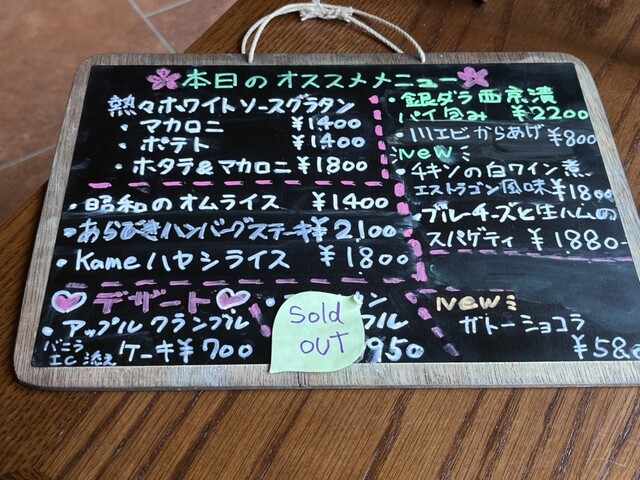 本日のオススメメニュー
熱々ホワイトソースグラタン
・マカロニ ¥1400
・ポテト ¥1400
・ホタテ&マカロニ ¥1800
・昭和のオムライス ¥1400
・あらびきハンバーグステーキ¥2100
・Kameハヤシライス ¥1800
デザート
・アップルクランブル
ケーキ¥700
バニラ
添え
ン
フル
950
Sold
OUT
・銀ダラ西京漬
パイ包み ¥2200
・川エビからあげ ¥800
NEW
・チキンの白ワイン煮
エストラゴン風味 ¥1800
・ブルーチーズと生ハムの
スパゲティ ¥1880-
NEW
ガトーショコラ
¥580